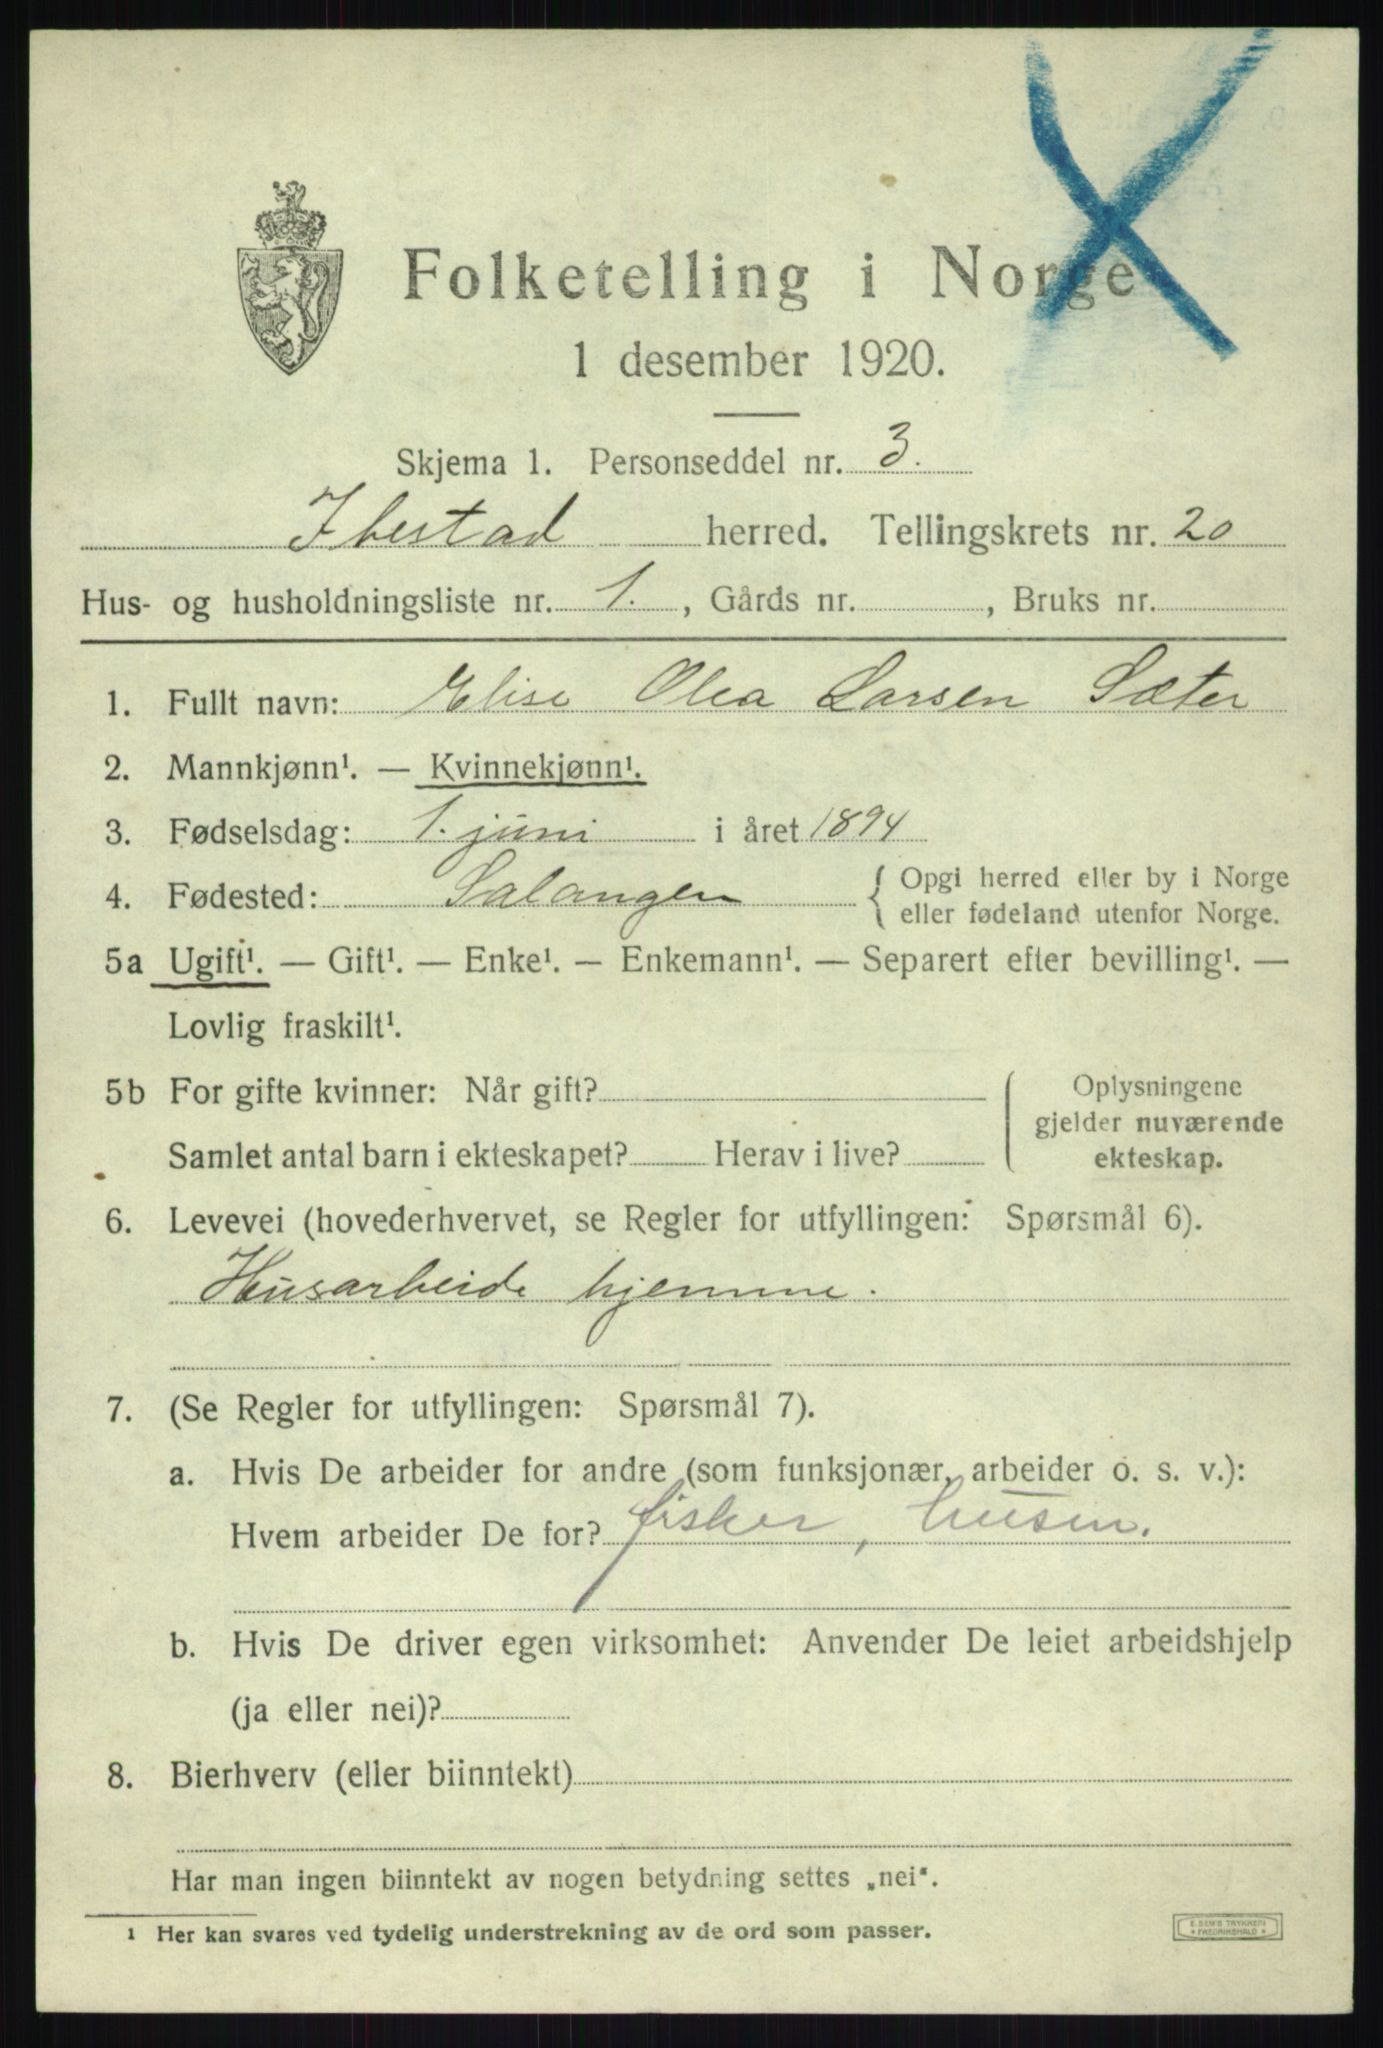 Folketelling i Norge
1 desember 1920.
Skjema 1. Personseddel nr. 3.
Ibestad herred. Tellingskrets nr. 20
Hus- og husholdningsliste nr. 1. , Gårds nr. , Bruks nr.
1. Fullt navn: Elise Olea Larsen Sæter
2. Mannkjønn¹. — Kvinnekjønn¹.
3. Fødselsdag: 1. juni i året 1894
4. Fødested: Salangen { Opgi herred eller by i Norge
eller fødeland utenfor Norge.
5a Ugift¹. — Gift¹. — Enke¹. — Enkemann¹. — Separert efter bevilling¹. —
Lovlig fraskilt¹.
5b For gifte kvinner: Når gift?
Samlet antal barn i ekteskapet? Herav i live?
Oplysningene
gjelder nuværende
ekteskap.
6. Levevei (hovederhvervet, se Regler for utfyllingen: Spørsmål 6).
Husarbeide hjemme.
7. (Se Regler for utfyllingen: Spørsmål 7).
a. Hvis De arbeider for andre (som funksjonær, arbeider o. s. v.):
Hvem arbeider De for? fisker,
b. Hvis De driver egen virksomhet: Anvender De leiet arbeidshjelp
(ja eller nei)?
8. Bierhverv (eller biinntekt)
Har man ingen biinntekt av nogen betydning settes „nei“.
¹ Her kan svares ved tydelig understrekning av de ord som passer.
E. SEM'S TRYKKERI
* FREDRIKSHALD *